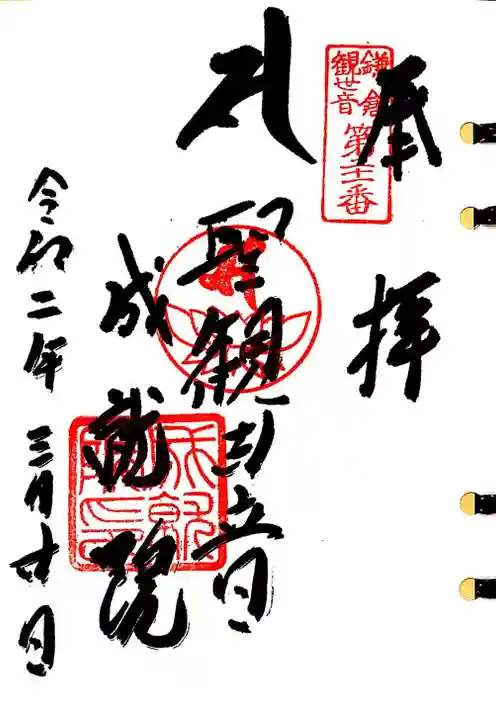 奉拝
鎌倉
観世音
第廿一番
聖観世音
成就院
成就
院印
令和二年三月廿日